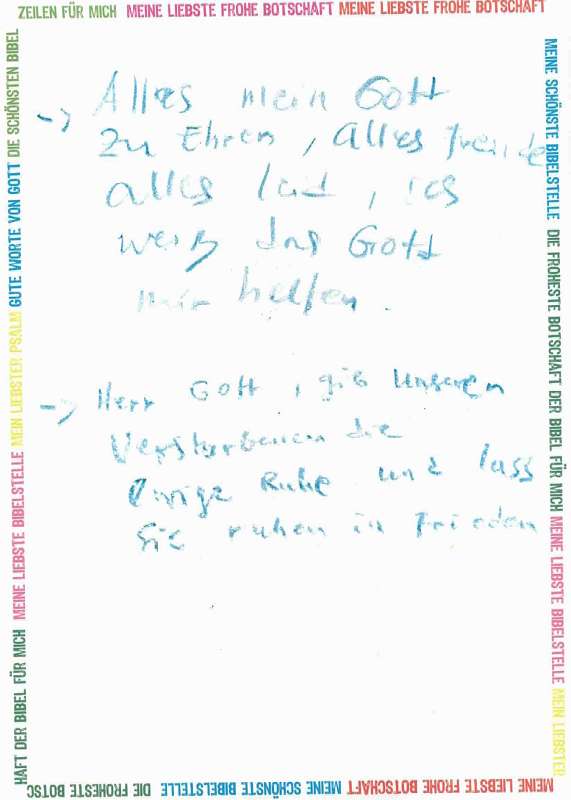 ZEILEN FÜR MICH MEINE LIEBSTE FROHE BOTSCHAFT MEINE LIEBSTE FROHE BOTSCHAFT
MEINE SCHÖNSTE BIBELSTELLE DIE FROHESTE BOTSCHAFT DER BIBEL FÜR MICH MEINE LIEBSTE BIBELSTELLE MEIN LIEBSTER
MEINE LIEBSTE FROHE BOTSCHAFT MEINE SCHÖNSTE BIBELSTELLE DIE FROHESTE BOTSC
HAFT DER BIBEL FÜR MICH MEINE LIEBSTE BIBELSTELLE MEIN LIEBSTER PSALM GUTE WORTE VON GOTT DIE SCHÖNSTEN BIBEL
→ Alles mein Gott
zu Ehren, alles freude
alles leid, ich
weiß das Gott
mir helfen.
→ Herr Gott, gib unseren
Verstorbenen die
ewige Ruhe und lass
sie ruhen in Frieden